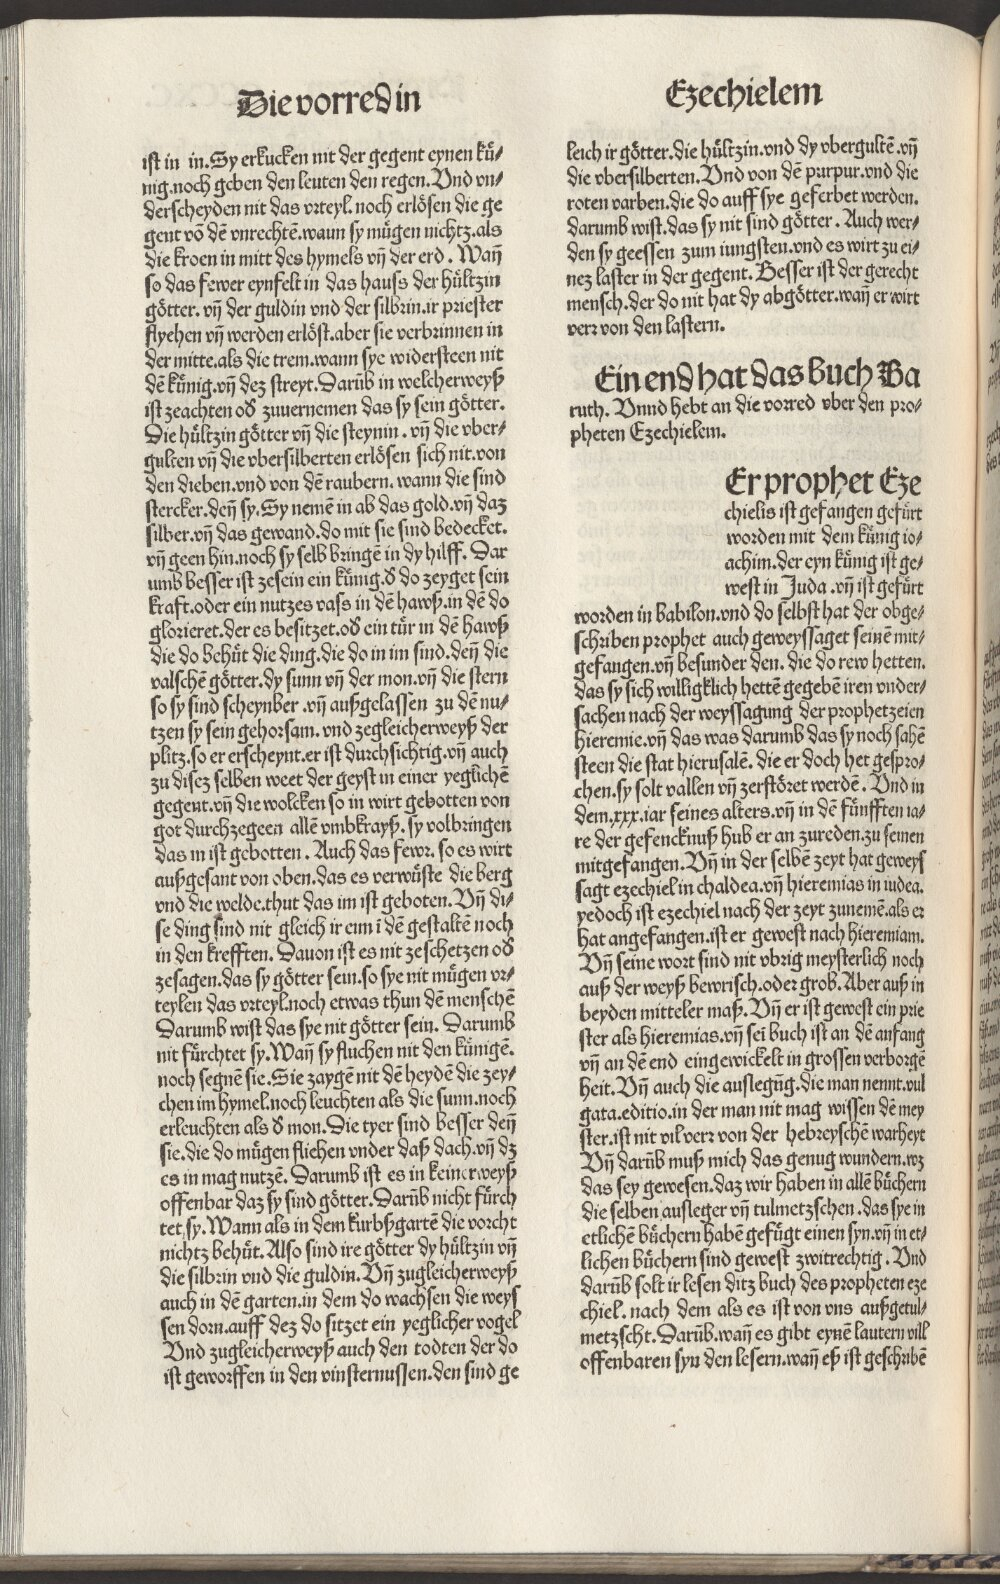 Die vorred in
Ezechielem
ist in in. Sy erkucken nit der gegent eynen kü-
nig. noch geben den leuten den regen. Vnd vn-
derscheyden nit das vrteyl. noch erlösen die ge
gent võ dẽ vnrechtẽ. wann sy mügen nichtz. als
die kroen in mitt des hymels vñ der erd. Wañ
so das fewer eynfelt in das hauss der hültzin
götter. vñ der guldin vnd der silbrin. ir priester
flyehen vñ werden erlöst. aber sie verbrinnen in
der mitte. als die trem. wann sye widersteen nit
dẽ künig. vñ dez streyt. Darũb in welcherweyß
ist zeachten oď zuuernemen das sy sein götter.
Die hültzin götter vñ die steynin. vñ die vber-
gulten vñ die vbersilberten erlösen sich nit. von
den dieben. vnd von dẽ raubern. wann die sind
stercker. deñ sy. Sy nemẽ in ab das gold. vñ daz
silber. vñ das gewand. do mit sie sind bedecket.
vñ geen hin. noch sy selb bringẽ in dy hilff. Dar
umb besser ist zesein ein künig. ď do zeyget sein
kraft. oder ein nutzes vass in dẽ hawß. in dẽ do
glorieret. der es besitzet. oď ein tür in dẽ hawß
die do behüt die ding. die do in im sind. deñ die
valschẽ götter. dy sunn vñ der mon. vñ die stern
so sy sind scheynber. vñ außgelassen zu dẽ nu-
tzen sy sein gehorsam. vnd zegleicherweyß der
plitz. so er erscheynt. er ist durchsichtig. vñ auch
zu disez selben weet der geyst in einer yeglichẽ
gegent. vñ die wolcken so in wirt gebotten von
got durchzegeen allẽ vmbkrayß. sy volbringen
das in ist gebotten. Auch das fewr. so es wirt
außgesant von oben. das es verwüste die berg
vnd die welde. thut das im ist geboten. Vñ di-
se ding sind nit gleich ir einẽ ĩ dẽ gestaltẽ noch
in den krefften. Dauon ist es nit zeschetzen oď
zesagen. das sy götter sein. so sye nit mügen vr-
teylen das vrteyl. noch etwas thun dẽ menschẽ
Darumb wist das sye nit götter sein. Darumb
nit fürchtet sy. Wañ sy fluchen nit den künigẽ.
noch segnẽ sie. Sie zaygẽ nit dẽ heydẽ die zey-
chen im hymel. noch leuchten als die sunn. noch
erleuchten als ď mon. Die tyer sind besser deñ
sie. die do mügen fliehen vnder daß dach. vñ dz
es in mag nutzẽ. Darumb ist es in keinerweyß
offenbar daz sy sind götter. Darũb nicht fürch
tet sy. Wann als in dem kurbßgartẽ die vorcht
nichtz behüt. Also sind ire götter dy hültzin vñ
die silbrin vnd die guldin. Vñ zugleicherweyß
auch in dẽ garten. in dem do wachsen die weys
sen dorn. auff dez do sitzet ein yeglicher vogel
Vnd zugleicherweyß auch den todten der do
ist geworffen in den vinsternussen. den sind ge
leich ir götter. die hültzin. vnd dy vbergultẽ. vñ
die vbersilberten. Vnd von dẽ purpur. vnd die
roten varben. die do auff sye geferbet werden.
darumb wist. das sy nit sind götter. Auch wer-
den sy geessen zum iungsten. vnd es wirt zu ei-
nez laster in der gegent. Besser ist der gerecht
mensch. der do nit hat dy abgötter. wañ er wirt
verr von den lastern.
Ein end hat das buch Ba
ruth. Vnnd hebt an die vorred vber den pro-
pheten Ezechielem.
Er prophet Eze
chielis ist gefangen gefürt
worden mit dem künig io-
achim. der eyn künig ist ge-
west in Juda. vñ ist gefürt
worden in babilon. vnd do selbst hat der obge-
schriben prophet auch geweyssaget seinẽ mit-
gefangen. vñ besunder den. die do rew hetten.
das sy sich willigklich hettẽ gegebẽ iren vnder-
sachen nach der weyssagung der prophetzeien
hieremie. vñ das was darumb das sy noch sahẽ
steen die stat hierusalẽ. die er doch het gespro-
chen. sy solt vallen vñ zerstöret werdẽ. Vnd in
dem. xxx. iar seines alters. vñ in dẽ fünfften ia-
re der gefencknuß hub er an zureden. zu seinen
mitgefangen. Vñ in der selbẽ zeyt hat geweys
sagt ezechiel in chaldea. vñ hieremias in iudea.
yedoch ist ezechiel nach der zeyt zunemẽ. als er
hat angefangen. ist er gewest nach hieremiam.
Vñ seine wort sind nit vbrig meysterlich noch
auß der weyß bewrisch. oder grob. Aber auß in
beyden mitteler maß. Vñ er ist gewest ein prie
ster als hieremias. vñ sei buch ist an dẽ anfang
vñ an dẽ end eingewickelt in grossen verborgẽ
heit. Vñ auch die auslegũg. die man nennt. vul
gata. editio. in der man nit mag wissen dẽ mey
ster. ist nit vil verr von der hebreyschẽ warheyt
Vñ darũb muß mich das genug wundern. wz
das sey gewesen. daz wir haben in allẽ büchern
die selben ausleger vñ tulmetzschen. das sye in
etlichẽ büchern habẽ gefügt einen syn. vñ in et-
lichen büchern sind gewest zwitrechtig. Vnd
darũb solt ir lesen ditz buch des propheten eze
chiel. nach dem als es ist von vns außgetul-
metzscht. Darũb. wañ es gibt eynẽ lautern vill
offenbaren syn den lesern. wañ eß ist geschribẽ